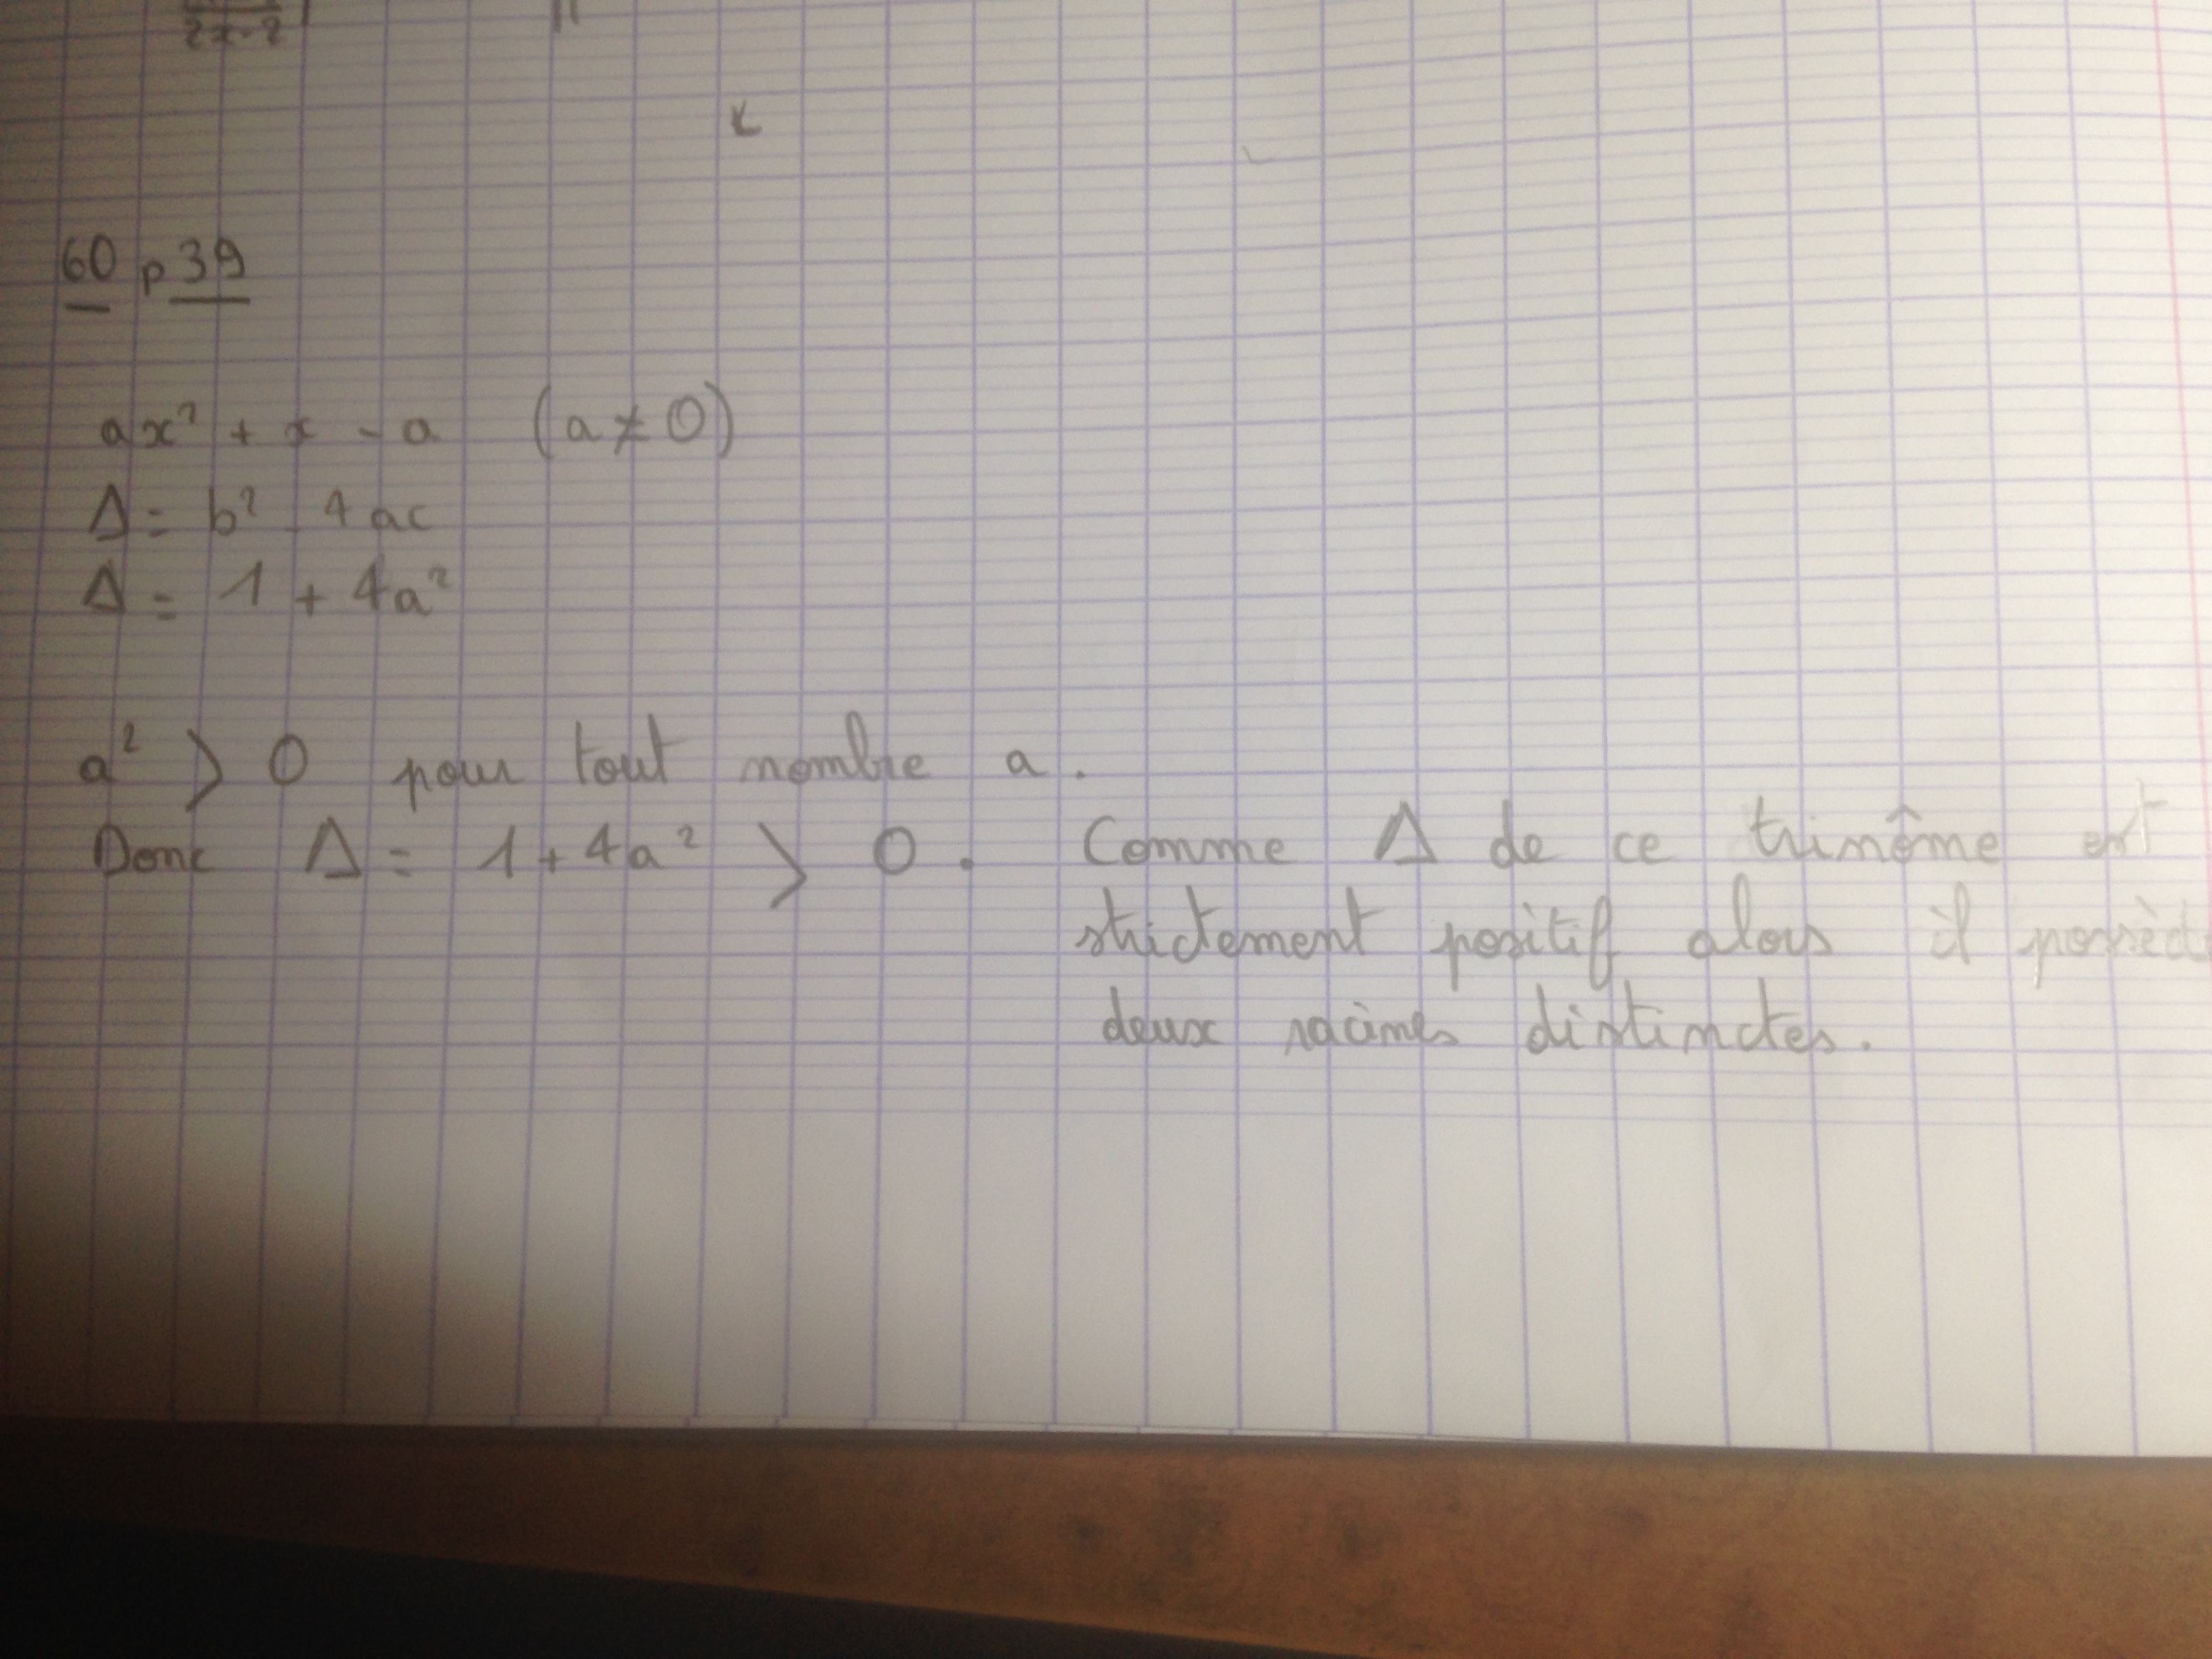 60 p 39
ax² + x - a (a ≠ 0)
Δ = b² - 4ac
Δ = 1 + 4a²
a² > 0 pour tout nombre a.
Donc Δ = 1 + 4a² > 0. Comme Δ de ce trinôme est
strictement positif alors il possède
deux racines distinctes.